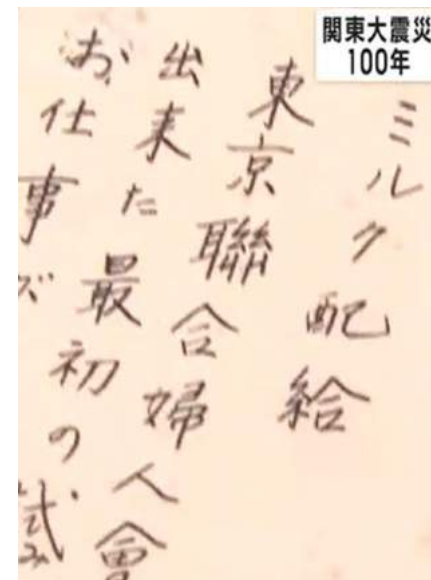 関東大震災
100年
ミルク配給
東京聯合婦人會
出来た最初の試み
お仕事